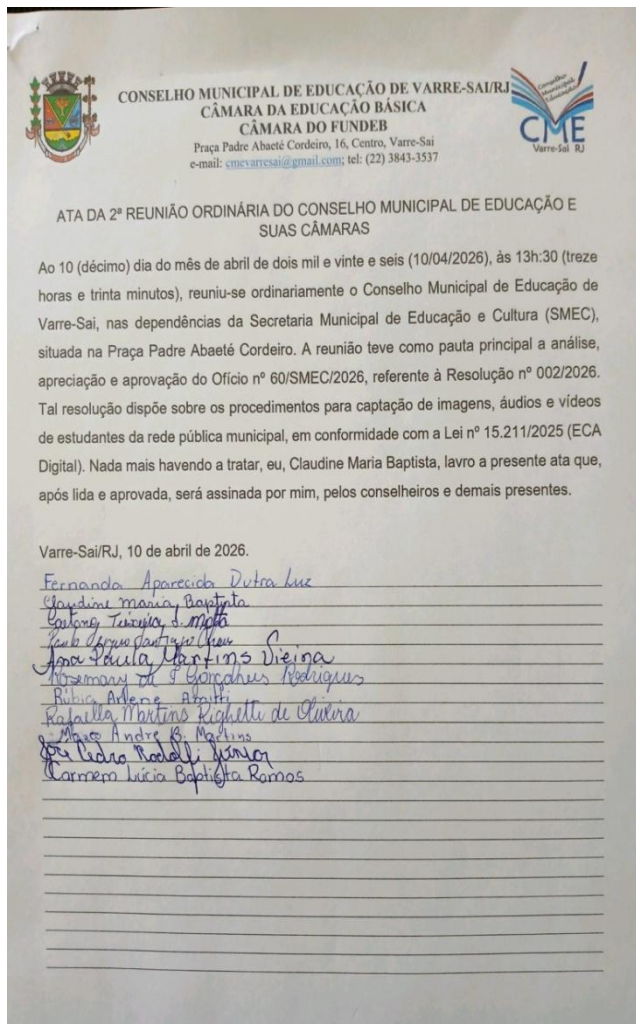 CONSELHO MUNICIPAL DE EDUCAÇÃO DE VARRE-SAI/RJ
CÂMARA DA EDUCAÇÃO BÁSICA
CÂMARA DO FUNDEB
Praça Padre Abaeté Cordeiro, 16, Centro, Varre-Sai
e-mail: cmevarresai@gmail.com; tel: (22) 3843-3537
Conselho
Municipal
Educação
CME
Varre-Sai RJ
ATA DA 2ª REUNIÃO ORDINÁRIA DO CONSELHO MUNICIPAL DE EDUCAÇÃO E
SUAS CÂMARAS
Ao 10 (décimo) dia do mês de abril de dois mil e vinte e seis (10/04/2026), às 13h:30 (treze
horas e trinta minutos), reuniu-se ordinariamente o Conselho Municipal de Educação de
Varre-Sai, nas dependências da Secretaria Municipal de Educação e Cultura (SMEC),
situada na Praça Padre Abaeté Cordeiro. A reunião teve como pauta principal a análise,
apreciação e aprovação do Ofício nº 60/SMEC/2026, referente à Resolução nº 002/2026.
Tal resolução dispõe sobre os procedimentos para captação de imagens, áudios e vídeos
de estudantes da rede pública municipal, em conformidade com a Lei nº 15.211/2025 (ECA
Digital). Nada mais havendo a tratar, eu, Claudine Maria Baptista, lavro a presente ata que,
após lida e aprovada, será assinada por mim, pelos conselheiros e demais presentes.
Varre-Sai/RJ, 10 de abril de 2026.
Fernanda Aparecida Dutra Luz
Claudine Maria Baptista
Teixeira
Paulo
Ana Paula Martins Vieira
Rosemary Gonçalves Rodrigues
Arlene
Rafaella Martins Righetti de Oliveira
Marco André B. Martins
José Pedro Rodolfi Júnior
Carmem Lúcia Baptista Ramos